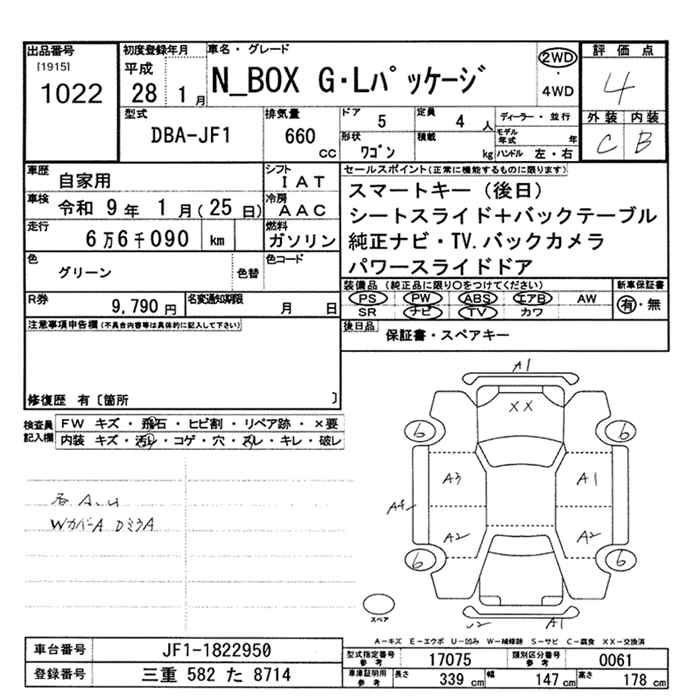 出品番号
[1915]
1022
初度登録年月
平成
28 1月
車名・グレード
N_BOX G・Lパッケージ
2WD
・
4WD
評価点
4
外装 内装
C B
型式
DBA-JF1
排気量
660
cc
ドア
5
定員
4 人
ディーラー・並行
モデル年式 年
形状
ワゴン
積載
kg
ハンドル 左・右
車歴
自家用
シフト
IAT
車検
令和 9年 1月(25日)
冷房
AAC
走行
6万6千090 km
燃料
ガソリン
色
グリーン
色替
色コード
R券
9,790 円
名変通知期限
月 日
セールスポイント(正常に機能するものに限ります)
スマートキー(後日)
シートスライド+バックテーブル
純正ナビ・TV.バックカメラ
パワースライドドア
装備品(純正品に限り○をつけてください)
PS PW ABS エアB AW
SR ナビ TV カワ
新車保証書
有・無
後日品
保証書・スペアキー
注意事項申告欄(不具合内容等は具体的に記入して下さい)
修復歴 有〔箇所 〕
検査員記入欄
FW キズ・飛石・ヒビ割・リペア跡・×要
内装 キズ・汚レ・コゲ・穴・スレ・キレ・破レ
A,U
WカバーA DミラA
A1
XX
6 6
A3 A1
A4
A2 A2
6 6
A1
スペア
A−キズ E−エクボ U−凹み W−補修跡 S−サビ C−腐食 XX−交換済
車台番号
JF1-1822950
登録番号
三重 582 た 8714
型式指定番号
参考
17075
類別区分番号
参考
0061
車庫証明用
参考
長さ
339 cm
幅
147 cm
高さ
178 cm